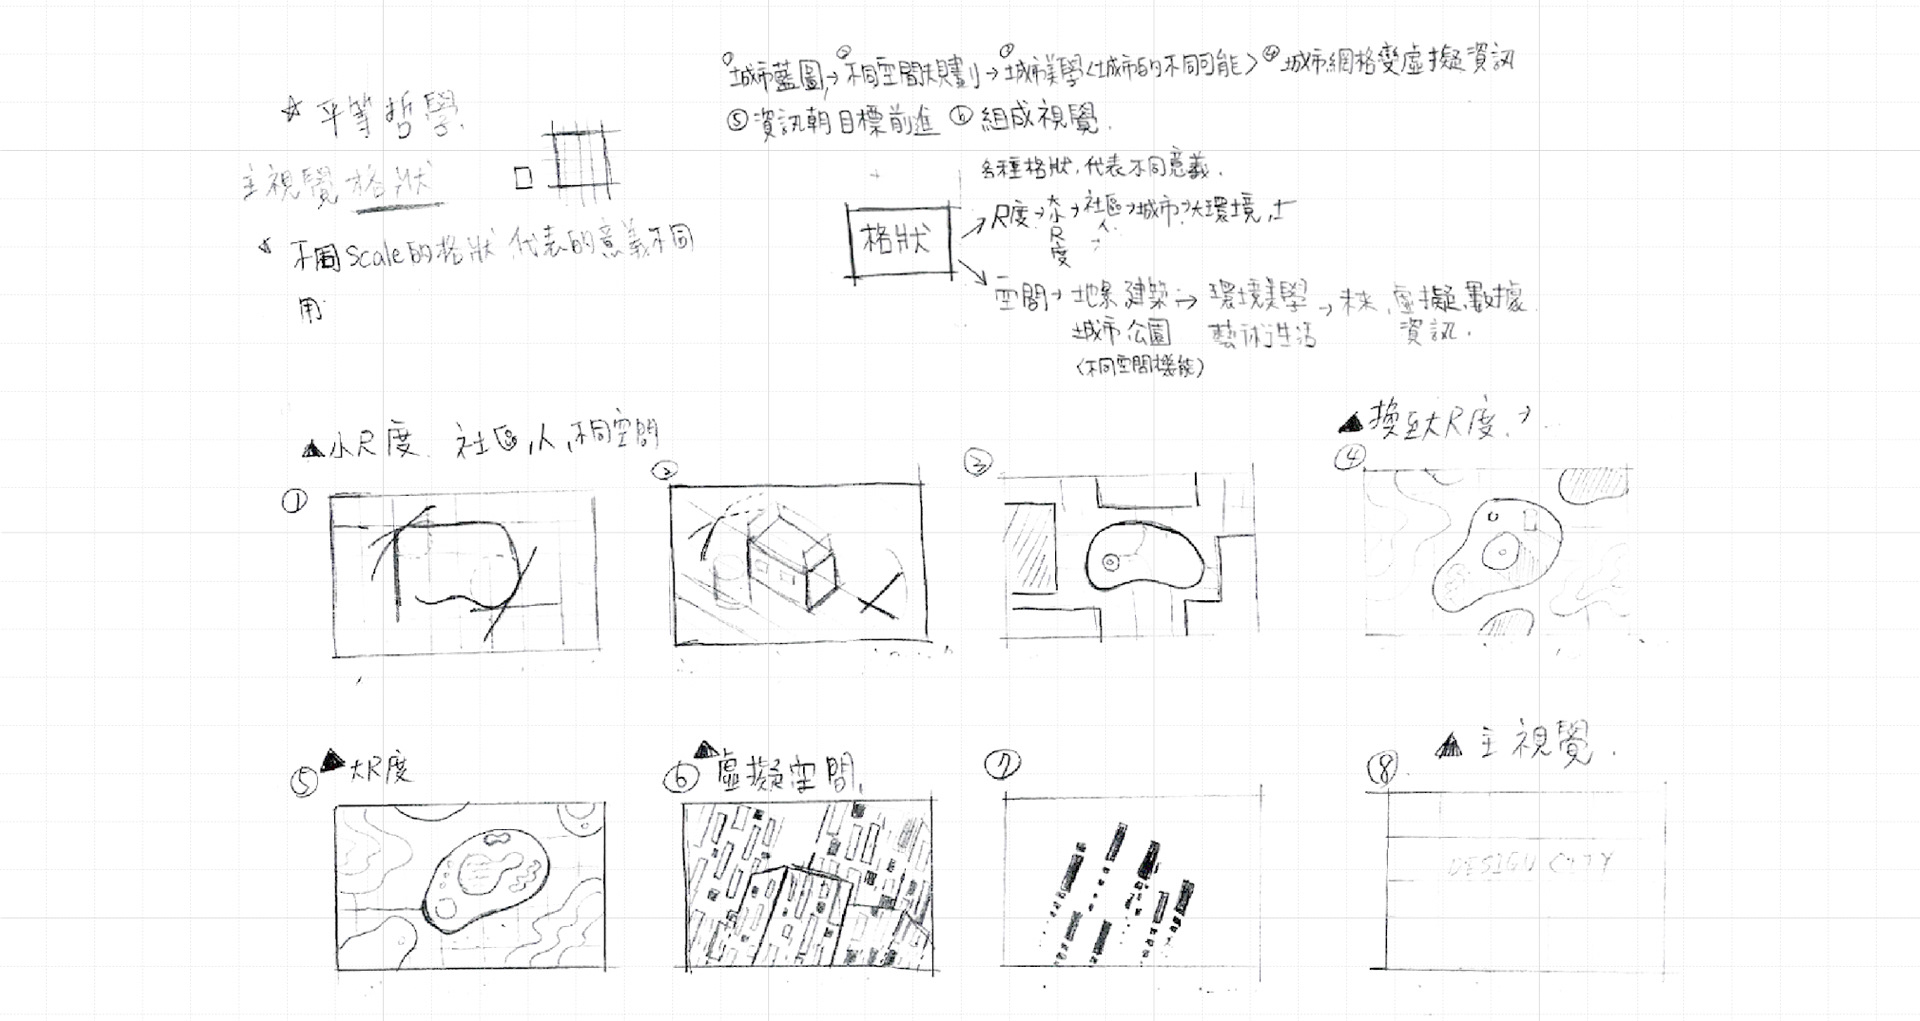 ☆ 平等哲學.
主視覺 格狀
不同Scale的格狀 代表的意義不同
用
①城市藍圖, → ②不同空間規劃 → ③城市美學<城市的不同可能> ④城市網格變虛擬資訊
⑤資訊朝目標前進 ⑥組成視覺.
各種格狀, 代表不同意義.
格狀
尺度→大小尺度→社區 人→城市→大環境,
空間→地景 建築→環境美學→未來, 虛擬, 數據
城市公園 藝術生活 資訊.
<不同空間機能>
▲小尺度. 社區,人,不同空間
▲換至大尺度.→
①
②
③
④
⑤ ▲大尺度
⑥ ▲虛擬空間,
⑦
⑧ ▲主視覺.
DESIGN CITY